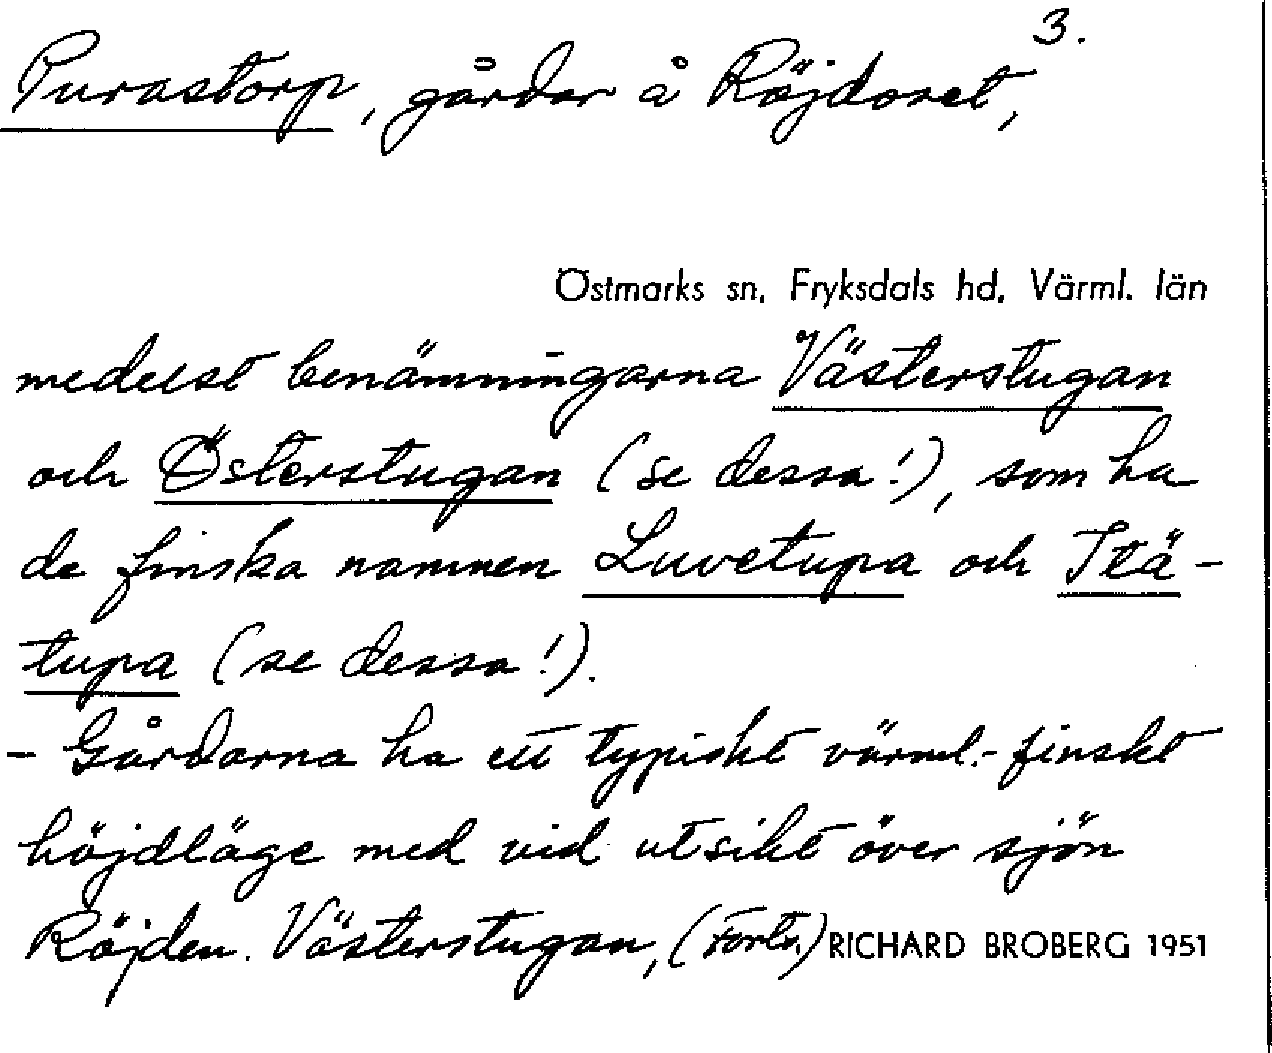 3.
Purastorp, gårdar å Röjdoset,
Östmarks sn, Fryksdals hd, Värml. län
medelst benämningarna Västerstugan
och Österstugan (se dessa!), som ha
de finska namnen Luvetupa och Itä-
tupa (se dessa!).
- Gårdarna ha ett typiskt värml.-finskt
höjdläge med vid utsikt över sjön
Röjden. Västerstugan, (Forts.) RICHARD BROBERG 1951